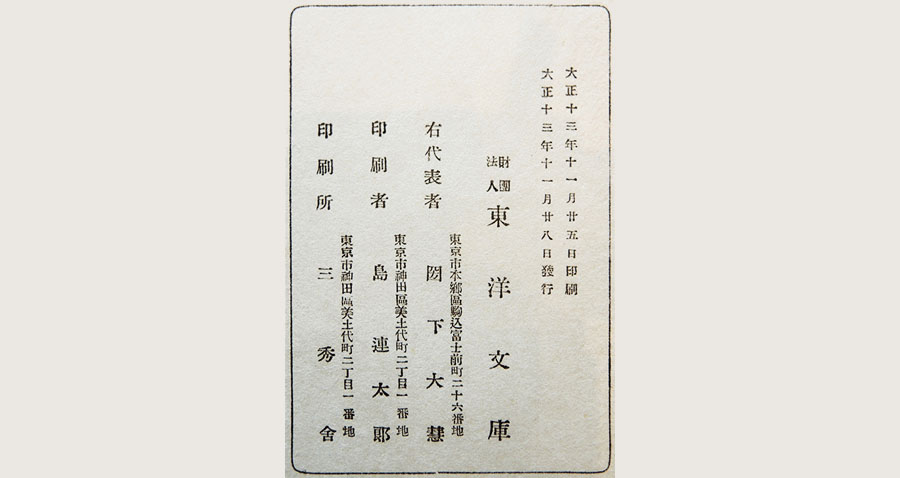 大正十三年十一月廿五日印刷
大正十三年十一月廿八日發行
財團法人東洋文庫
東京市本鄕區駒込富士前町二十六番地
右代表者 圀下大慧
東京市神田區美土代町二丁目一番地
印刷者 島連太郎
東京市神田區美土代町二丁目一番地
印刷所 三秀舍